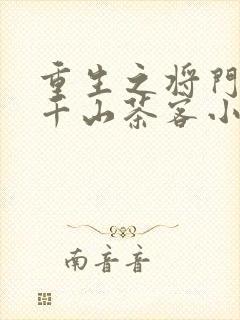 重生之将门
千山茶客小
南音音